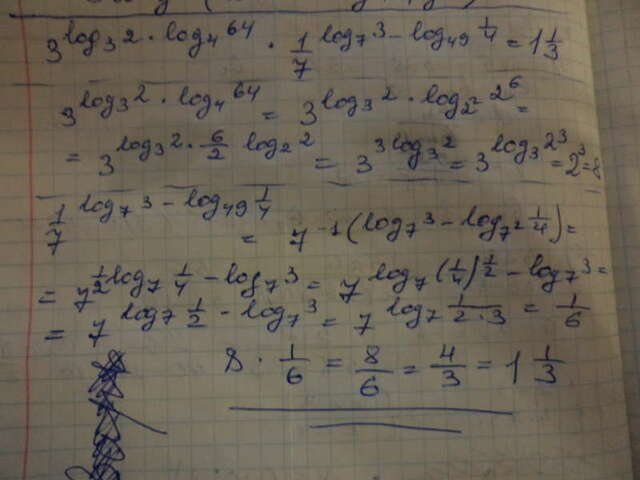 3^{log_3 2 · log_4 64} · \frac{1}{7}^{log_7 3 - log_{49} \frac{1}{4}} = 1\frac{1}{3}
3^{log_3 2 · log_4 64} = 3^{log_3 2 · log_{2^2} 2^6} =
= 3^{log_3 2 · \frac{6}{2} log_2 2} = 3^{3 log_3 2} = 3^{log_3 2^3} = 2^3 = 8
\frac{1}{7}^{log_7 3 - log_{49} \frac{1}{4}} = 7^{-1(log_7 3 - log_{7^2} \frac{1}{4})} =
= 7^{\frac{1}{2} log_7 \frac{1}{4} - log_7 3} = 7^{log_7 (\frac{1}{4})^{\frac{1}{2}} - log_7 3} =
= 7^{log_7 \frac{1}{2} - log_7 3} = 7^{log_7 \frac{1}{2·3}} = \frac{1}{6}
8 · \frac{1}{6} = \frac{8}{6} = \frac{4}{3} = 1\frac{1}{3}